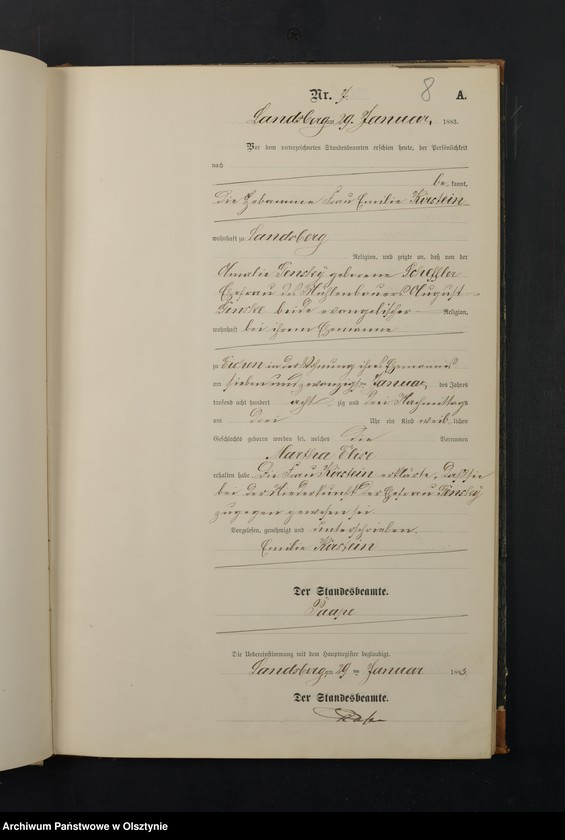 Nr. 7. 8 A.
Landsberg am 29. Januar, 1883.
Vor dem unterzeichneten Standesbeamten erschien heute, der Persönlichkeit
nach
be kannt,
die Hebamme Frau Emilie Kirstein
wohnhaft zu Landsberg
Religion, und zeigte an, daß von der
Amalie geborene Scheffler
Ehefrau des Mühlenbauers August
beide evangelischer Religion,
wohnhaft bei ihrem Ehemanne
zu in der Wohnung ihres Ehemannes
am sieben und zwanzigsten Januar, des Jahres
tausend acht hundert acht zig und drei Nachmittags
um drei Uhr ein Kind weib lichen
Geschlechts geboren worden sei, welches die Vornamen
Martha Elise
erhalten habe. Die Frau Kirstein erklärte, daß sie
bei der Niederkunft der Ehefrau
zugegen gewesen sei.
Vorgelesen, genehmigt und unterschrieben.
Emilie Kirstein
Der Standesbeamte.
Paape
Die Uebereinstimmung mit dem Hauptregister beglaubigt.
Landsberg am 29 ten Januar 1883.
Der Standesbeamte.
Archiwum Państwowe w Olsztynie